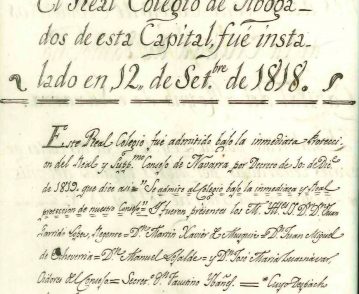 El Real Colegio de Aboga-
dos de esta Capital, fué insta-
lado en 12, de Set.bre de 1818.
Este Real Colegio fué admitido bajo la inmediata Protecci-
on del Real y Sup.mo Consejo de Navarra por Decreto de 30 de Dic.e
de 1819. que dice asi = Se admite al Colegio bajo la inmediata y Real
proteccion de nuestro Consejo = Y fueron presentes los M. D. D. Juan
Garrido Lopez, Regente = D.n Martin Xavier de Muzquiz = D.n Juan Miguel
de Echeverria = D.n Manuel = y D.n José Maria
Oidores del Consejo = Secret.o D.n Faustino Ibañez = Cuyo Despacho